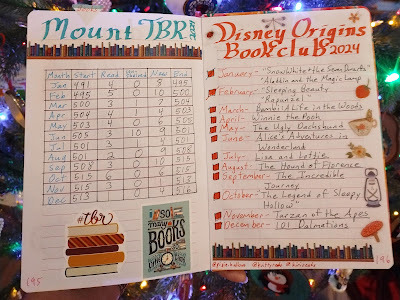 Mount TBR 2024
Month Start Read Added New End
Jan 491 4 0 8 495
Feb 495 5 0 10 500
Mar 500 3 7 504
Apr 504 4 4
May 503 4 6
Jun 505 3 10 9 501
Jul 501 3
Aug 501 2 0 9 508
Sep 508 3 0 10 515
Oct 515 6 0 6 515
Nov 515 3 0 4
Dec 513
#tbr
SO
MANY
BOOKS
195
Disney Origins
Bookclub 2024
January- "Snow White + the Seven Dwarfs"
Aladdin and the Magic Lamp
February- "Sleeping Beauty"
Rapunzel
March- Bambi: a Life in the Woods
April- Winnie the Pooh
May- The Ugly Dachshund
June- Alice's Adventures in
Wonderland
July- Lisa and Lottie
August- The Hound of Florence
September- The Incredible
Journey
October- "The Legend of Sleepy
Hollow"
November- Tarzan of the Apes
December- 101 Dalmations
196